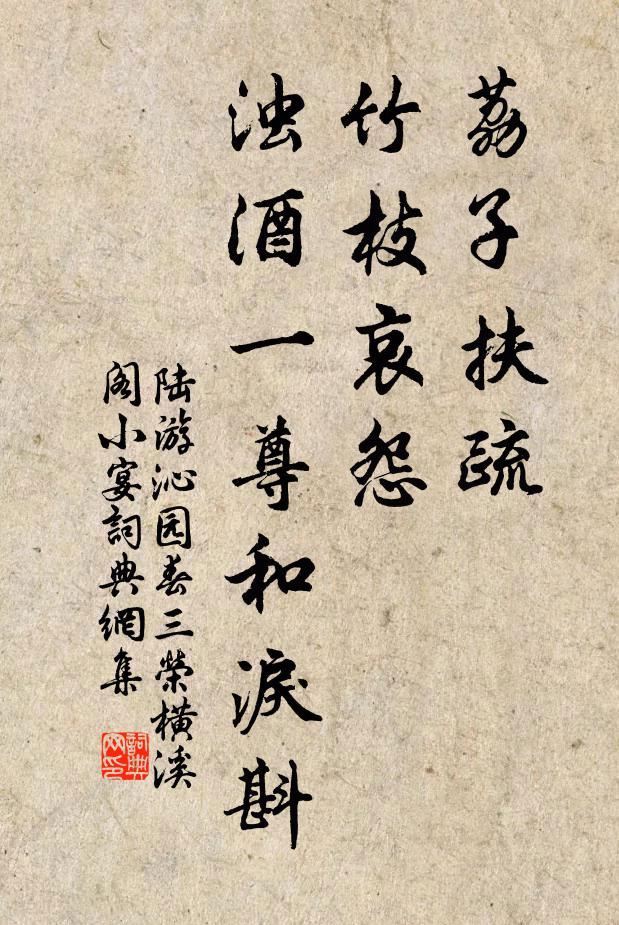 荔子扶疏
竹枝哀怨
浊酒一尊和淚斟
陆游沁园春三榮橫溪
阁小宴詞典網集
詞典
网印